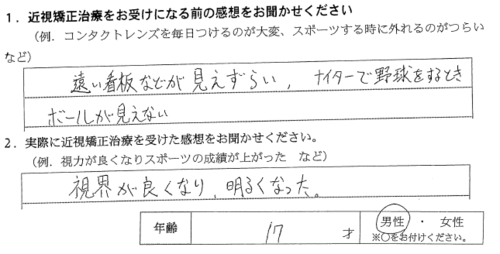 1．近視矯正治療をお受けになる前の感想をお聞かせください
（例．コンタクトレンズを毎日つけるのが大変、スポーツする時に外れるのがつらい
など）
遠い看板などが見えずらい，ナイターで野球をするとき
ボールが見えない
2．実際に近視矯正治療を受けた感想をお聞かせください。
（例．視力が良くなりスポーツの成績が上がった　など）
視界が良くなり，明るくなった。
年齢　17　才　男性 ・ 女性
※○をお付けください。